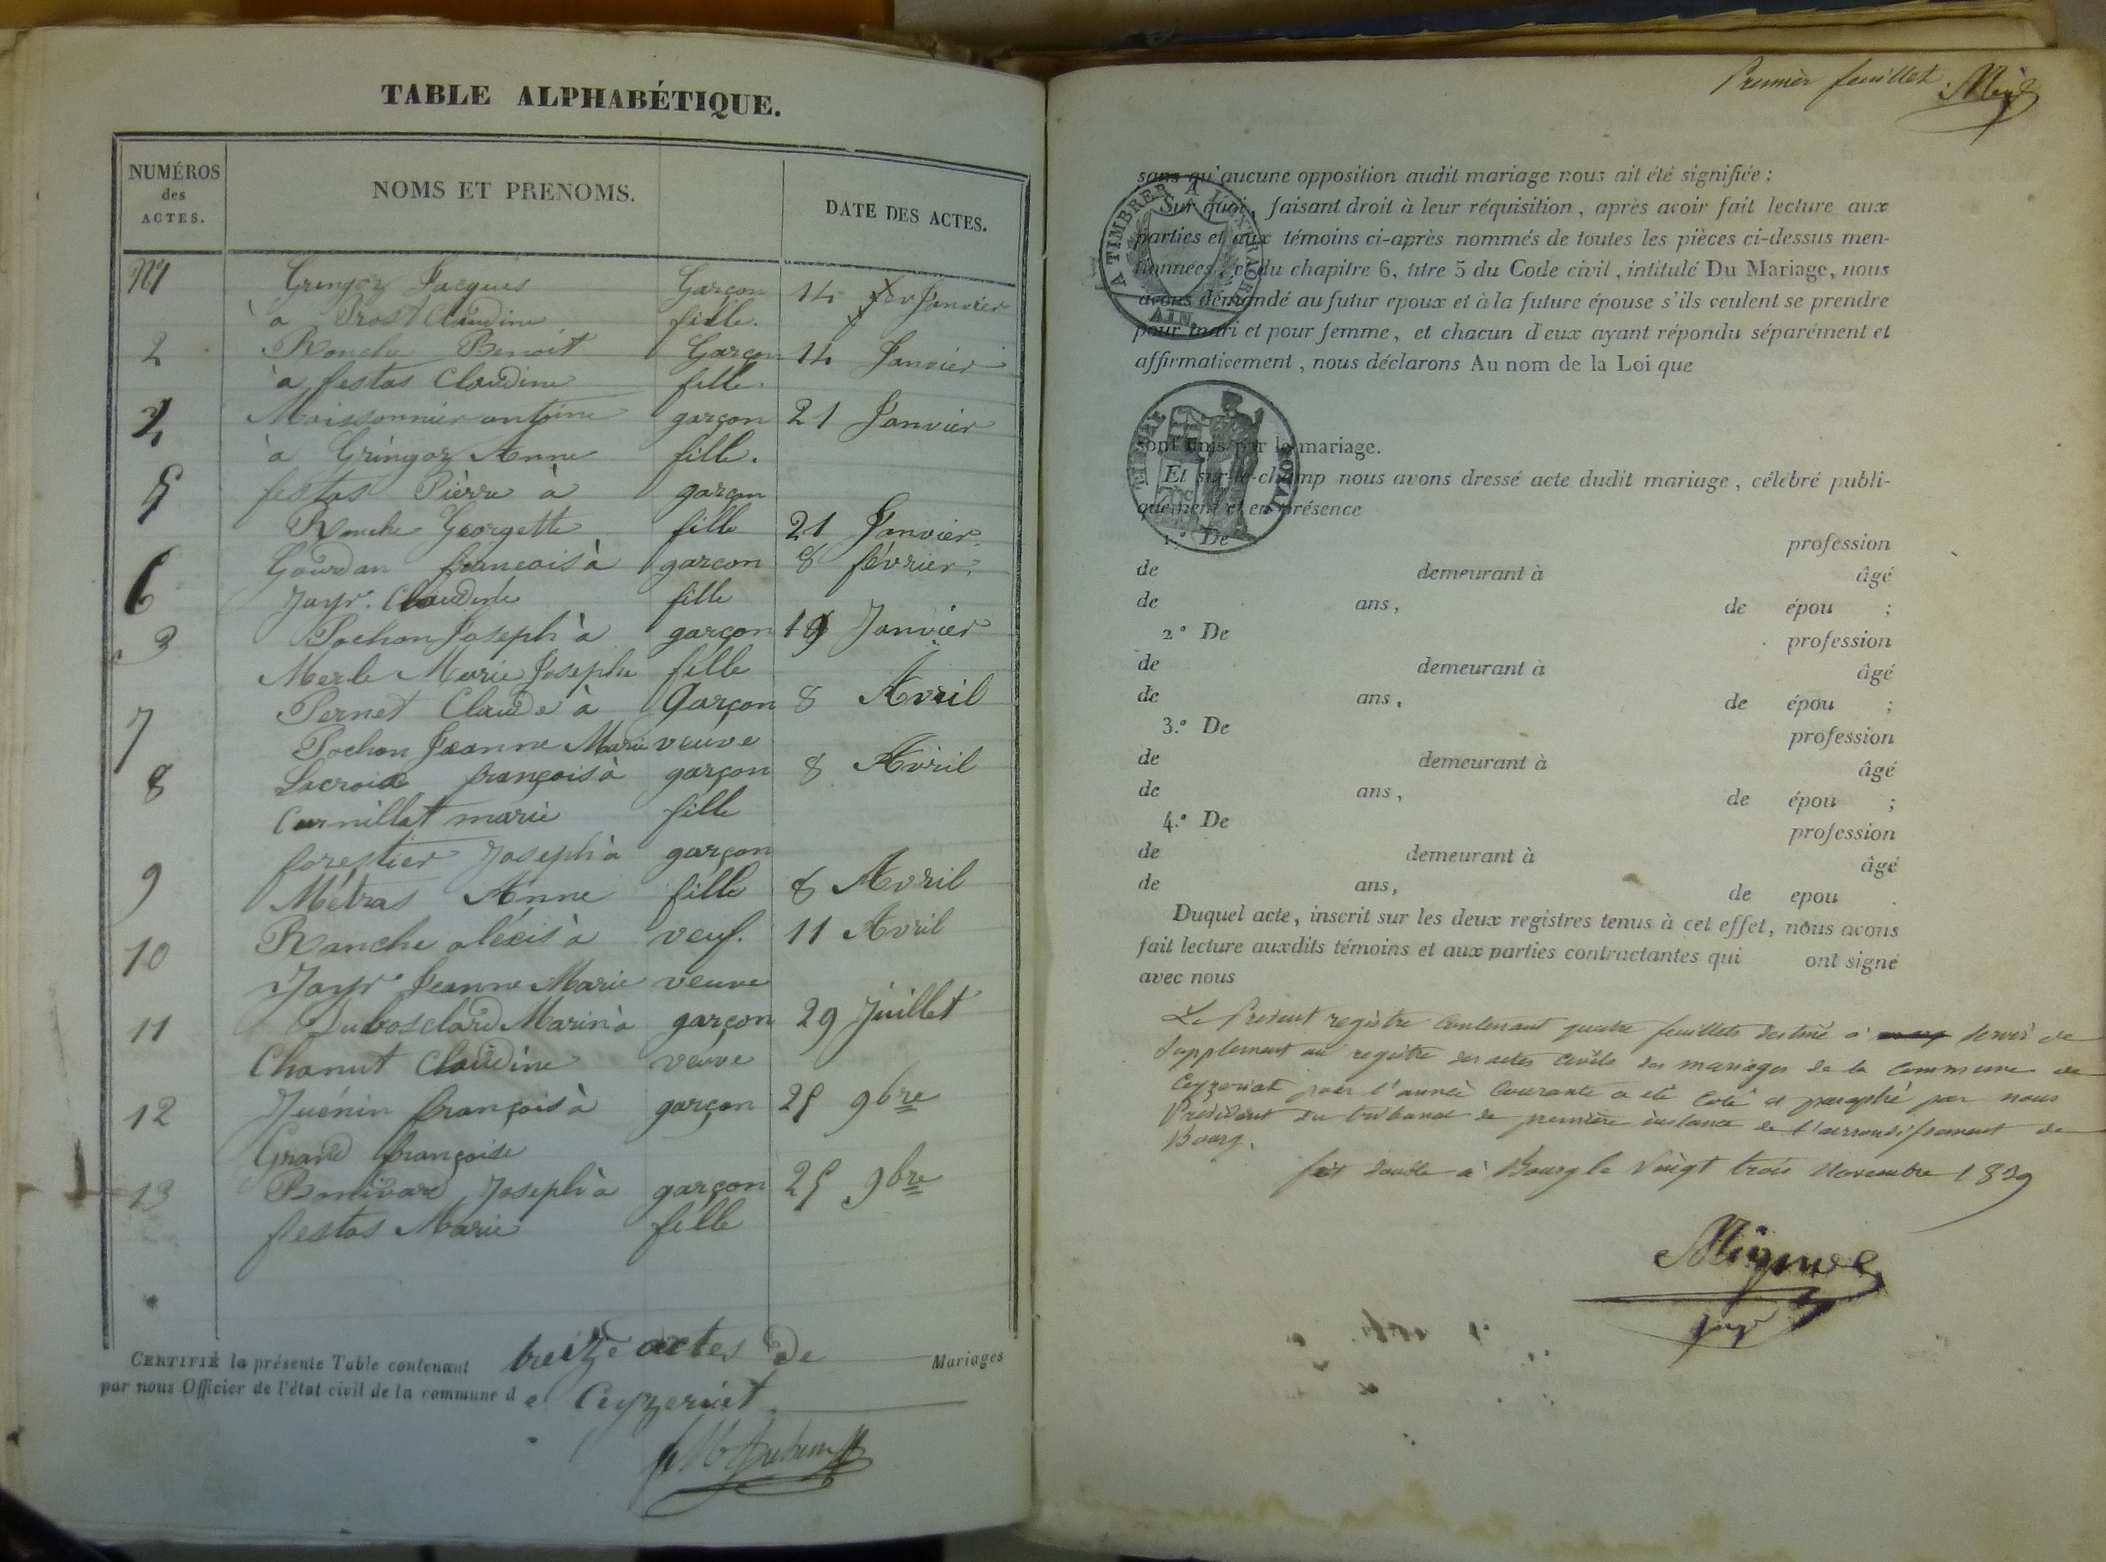 TABLE ALPHABÉTIQUE.
NUMÉROS des ACTES. NOMS ET PRENOMS. DATE DES ACTES.
N 1 Gringoz Jacques Garçon 14 Janvier
à Prost Claudine fille.
2 Ranche Benoit Garçon 14 Janvier
à festas Claudine fille.
4 Moissonnier antoine garçon 21 Janvier
à Gringoz Anne fille.
5 festas Pièrre à garçon
Ranche Georgette fille 21 Janvier
6 Gourdan francois à garcon 8 février.
Jayr. Claudine fille
3 Pochon Joseph à garçon 19 Janvier
Merle Marie Josephe fille
7 Pernet Claude à Garçon 8 Avril
Pochon Jeanne Marie veuve
8 Lacroix françois à garçon 8 Avril
Curnillat marie fille
9 forestier Joseph à garçon
Métras Anne fille 8 Avril
10 Ranche aléxis à veuf. 11 Avril
Jayr Jeanne Marie veuve
11 Dubosclard Marin à garçon 29 Juillet
Chanut Claudine veuve
12 Juénin françois à garçon 25 9bre
Grand françoise
13 Bonivard Joseph à garçon 25 9bre
festas Marie fille
CERTIFIÉ la présente Table contenant treize actes de Mariages
par nous Officier de l'état civil de la commune de Ceyzeriat.
Premier feuillet
sans qu'aucune opposition audit mariage nous ait été signifiée ;
Sur quoi, faisant droit à leur réquisition, après avoir fait lecture aux
parties et aux témoins ci-après nommés de toutes les pièces ci-dessus men-
tionnées, et du chapitre 6, titre 5 du Code civil, intitulé Du Mariage, nous
avons demandé au futur epoux et à la future épouse s'ils veulent se prendre
pour mari et pour femme, et chacun d'eux ayant répondu séparément et
affirmativement, nous déclarons Au nom de la Loi que
A TIMBRER A L'EXTRAORD.
AIN
sont unis par le mariage.
Et sur-le-champ nous avons dressé acte dudit mariage, célébré publi-
quement et en présence
TIMBRE ROYAL
1.° De profession
de demeurant à âgé
de ans, de épou ;
2° De profession
de demeurant à âgé
de ans, de épou ;
3.° De profession
de demeurant à âgé
de ans, de épou ;
4.° De profession
de demeurant à âgé
de ans, de epou .
Duquel acte, inscrit sur les deux registres tenus à cet effet, nous avons
fait lecture auxdits témoins et aux parties contractantes qui ont signé
avec nous
Le present registre Contenant quatre feuillets destiné à servir de
Supplement au registre des actes civils des mariages de la Commune de
Ceyzeriat pour l'année Courante a été Coté et paraphé par nous
President du tribunal de première instance de l'arrondissement de
Bourg.
fait double à Bourg le Vingt trois Novembre 1839